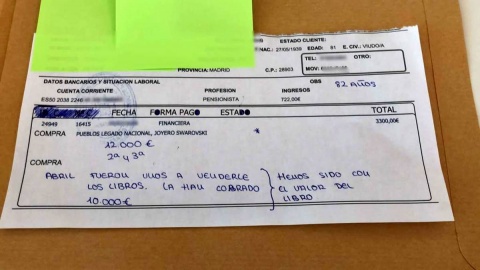 ESTADO CLIENTE:
NAC.: 27/05/1939 EDAD: 81 E. CIV.: VIUDO/A
TEL: OTRO:
MOV:
PROVINCIA: MADRID C.P.: 28903
DATOS BANCARIOS Y SITUACION LABORAL
OBS 82 AÑOS
CUENTA CORRIENTE PROFESION INGRESOS
ES50 2038 2246 PENSIONISTA 722,00€
FECHA FORMA PAGO ESTADO TOTAL
24949 16415 FINANCIERA 3300,00€
COMPRA PUEBLOS LEGADO NACIONAL, JOYERO SWAROVSKI *
12.000 €
2ª y 3ª
COMPRA
ABRIL FUERON UNOS A VENDERLE
LOS LIBROS. LA HAN COBRADO
10.000€
HEMOS SIDO CON
EL VALOR DEL
LIBRO